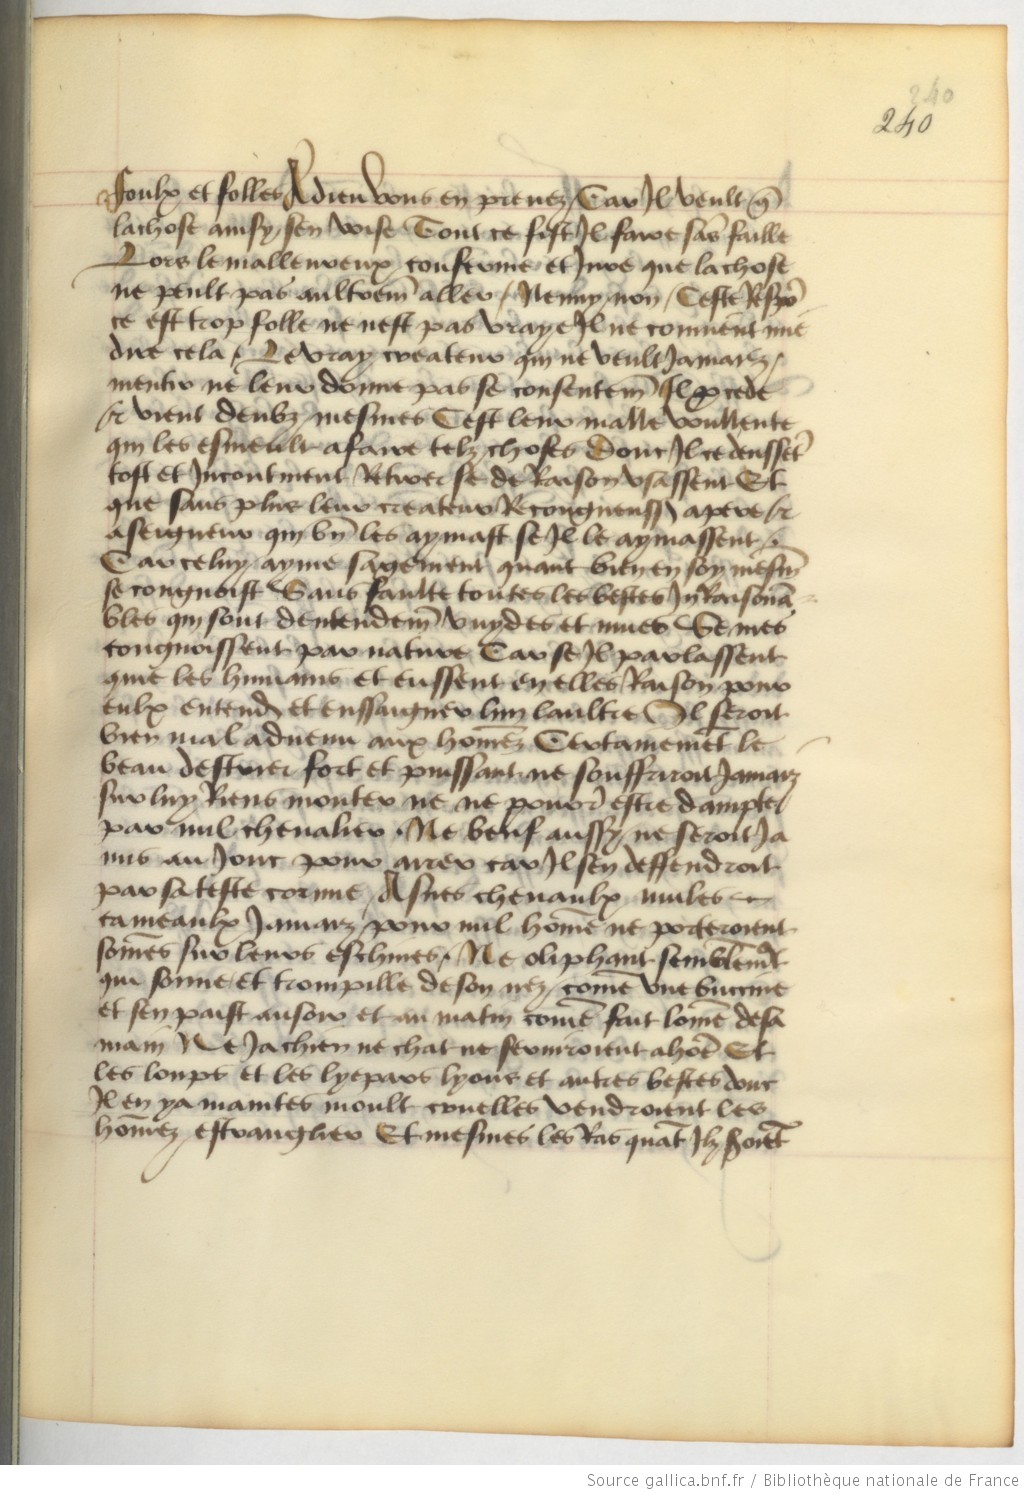 240
240
Foulx et folles A dieu vous en prenez / Car Il veult q̄
la chose ainsy sen voise Tout ce fist Il faire sās faille
Lors le malleureux conferme et Jure que la chose
ne peult pas aultrem̄ aller / Nenny non / Ceste Respō
ce est trop folle ne nest pas vraye Il ne convient mie
dire cela / Le vray createur qui ne veult Jamais /
mentir ne leur donne pas se consentem̄ Il pcede
et vient deulz mesmes Cest leur malle voullente
qui les esmeult a faire telz choses Donc Il ce deussēt
tost et Incontinent Retirer se de Raison usassent Et
que sans plus leur createur Recongneuss apere et
a seigneur qui bn̄ les aymast se Il le aymassent /
Car celuy ayme sagement quant bien en soy mesm̄
se congnoist Sans faulte toutes les bestes In Raisonā
bles qui sont dentendem̄ vuydes et mues Se mes
congnoissent par nature Car se Il parlassent
que les humains et eussent en elles Raison pour
eulx entendr et enssaigner lun laultre Il seroit
bien mal advenu aux hom̄ez Certainemēt le
beau destrier fort et puissant ne souffriroit Jamaiz
sur luy Riens monter ne ne pourr estre dampte
par nul chevalier . Ne beuf aussy ne seroit Ja
mis au Jouc pour arrer car Il sen deffendroit
par sa teste cornue / Asnes chevaulx mules
cameaulx Jamaiz / pour nul hom̄e ne porteroient
som̄es sur leurs eschines / Ne oliphant semblemēt
qui sonne et trompille de son nez / com̄e une buccine
et sen paist au soir et au matin com̄e fait lom̄e de sa
main Ne Ja chien ne chat ne serviroient a hōe Et
les loups et les lyepars lyons et autres bestes donc
Il en ya maintes moult cruelles vendroient les
hom̄ez estrangler Et mesmes les Ras quāt Ilz soiēt
Source gallica.bnf.fr / Bibliothèque nationale de France